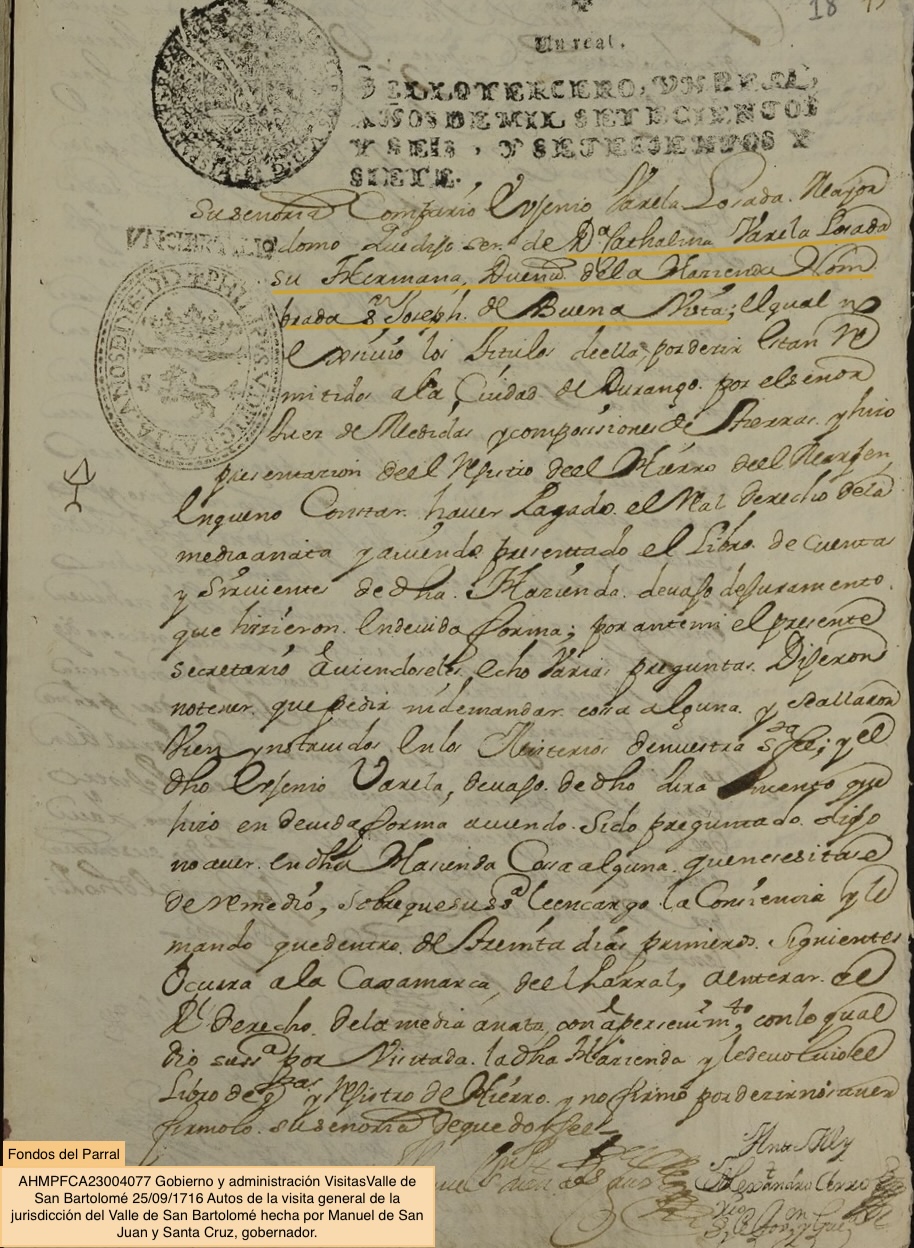 18
Un real.
SELLO TERCERO, VN REAL,
AÑOS DE MIL SETECIENTOS
Y SEIS, Y SETECIENTOS Y
SIETE.
Su senoria Compario Eusenio Varela Losada. Mayor
domo que dijo ser. de Dª Cathalina Varela Losada
su Hermana, Dueña della Hazienda Nom
brada Sº Joseph. de Buena Vista; el qual no
exivio los titulos deella, por decir estan Re
mitidos ala Ciudad de Durango. por el señor
Juez de Medidas y composisiones de tierras. y hizo
presentazion deel Rejistro deel Hierro deel
En que no Constar. haver Pagado. el Real derecho dela
mediaanata y aviendo presentado el Libro. de Cuentas
y Sirviente de dha. Hazienda. devajo de juramento.
que hizieron. En devida forma; por antemi el presente
secretario aviendoseles echo Varias preguntas. Dijeron
notener. que pedir nidemandar. cosa alguna. y se allaron
bien ynstruidos. En los Misterios de nuestra Sta fee; y el
dho Eusenio Varela, devajo. de dho Jura mento que
hizo en devida forma aviendo. Sido preguntado. dijo
no aver. en dha Hasienda Cosa alguna. que nesesitase
de remedio, sobre que su Sª le encargo la Consiencia y le
mando que dentro. de treinta dias primeros. Siguientes
Ocurra a la Caxa marca, deel Parral, a enterar. el
Rl derecho. dela media anata, con apersevimto. con lo qual
dio su Sª por Visitada. la dha Hazienda y le devolvio el
Libro de qtas y Rejistro de Hierro. y no firmo por dezir no saver
firmolo. su senoria de que doy fee
Ante My
Fondos del Parral
AHMPFCA23004077 Gobierno y administración VisitasValle de
San Bartolomé 25/09/1716 Autos de la visita general de la
jurisdicción del Valle de San Bartolomé hecha por Manuel de San
Juan y Santa Cruz, gobernador.